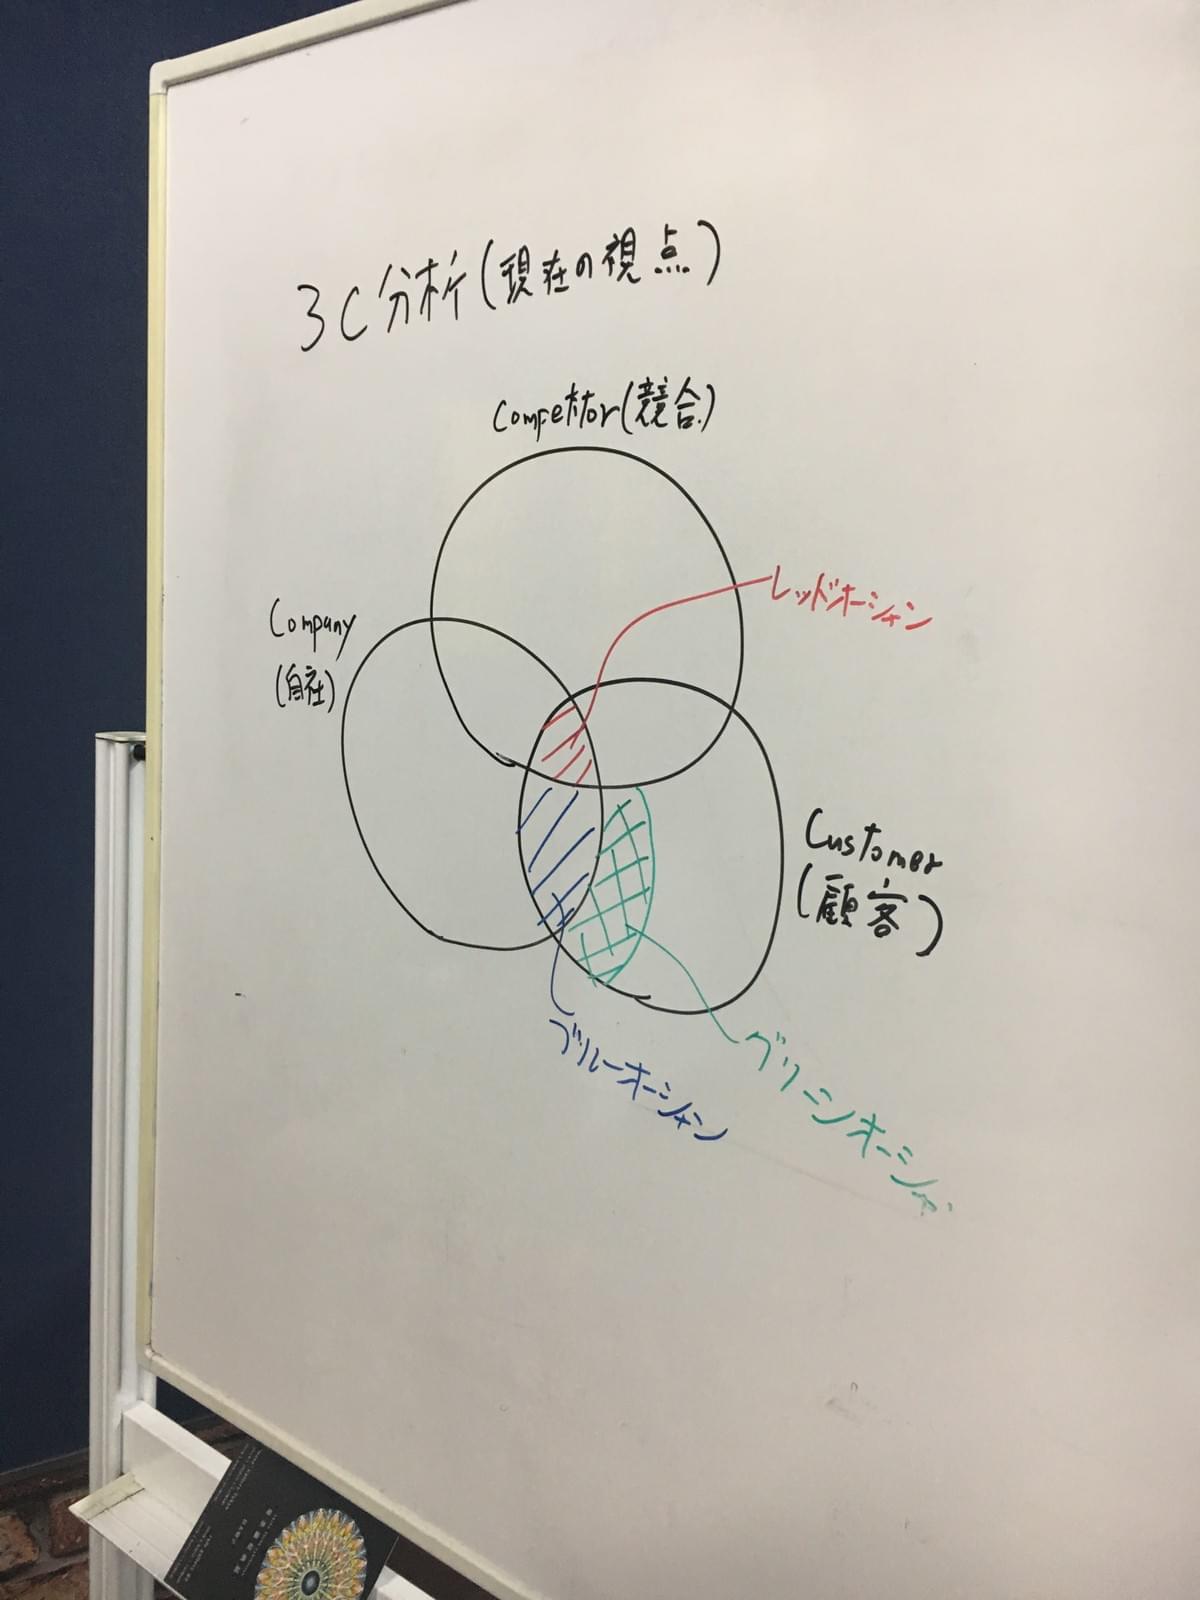 3C分析(現在の視点)
Competitor(競合)
レッドオーシャン
Company
(自社)
Customer
(顧客)
ブルーオーシャン
グリーンオーシャ